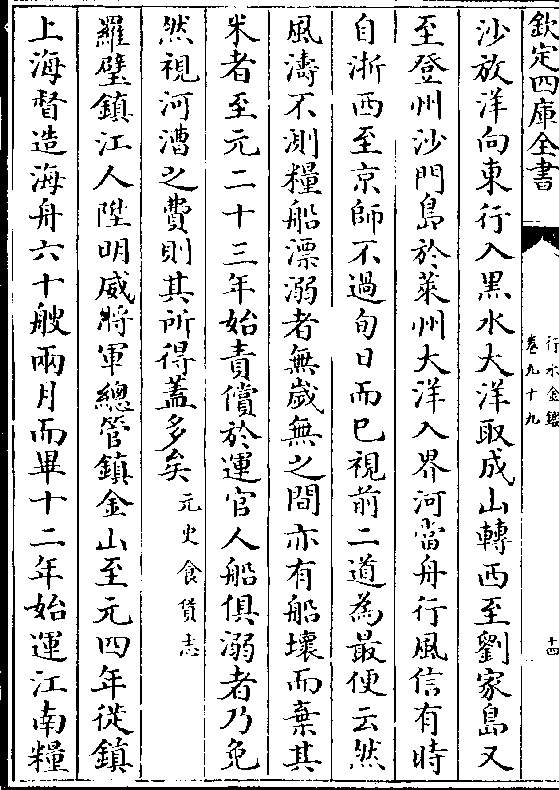 欽定四庫全書
行水金鑑
卷九十九
十四
沙放洋向東行入黒水大洋取成山轉西至劉家島又
至登州沙門島於萊州大洋入界河當舟行風信有時
自浙西至京師不過旬日而已視前二道為最便云然
風濤不測糧船漂溺者無歲無之間亦有船壞而棄其
米者至元二十三年始責償於運官人船俱溺者乃免
然視河漕之費則其所得蓋多矣元史食貨志
羅璧鎮江人陞明威將軍總管鎮金山至元四年徙鎮
上海督造海舟六十艘兩月而畢十二年始運江南糧